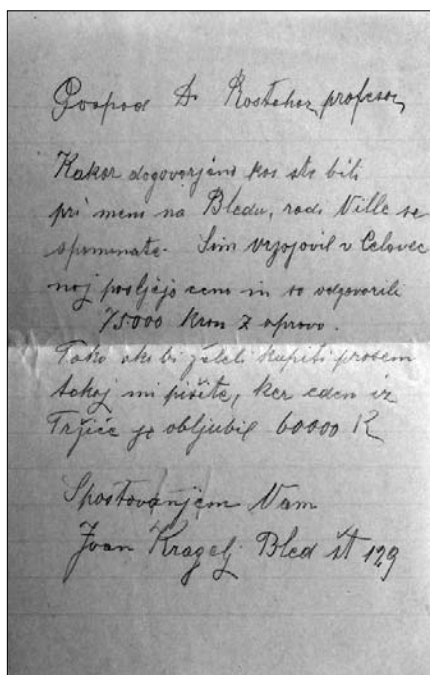 Gospod Dr Rostohar, profesor,
Kakor dogovorjeno kos ste bili
pri meni na Bledu, radi Ville se
spominate. Sim vrzojovil v Celovec
noj posljejo ceno in so odgovorili
75.000 Kron z opravo.
Tako ako bi želeli kupiti prosem
tokoj mi pišite, ker eden iz
Tržiča je obljubil 60000 K
Spoštovanjem Vam
Ivan Kragelj Bled št 129